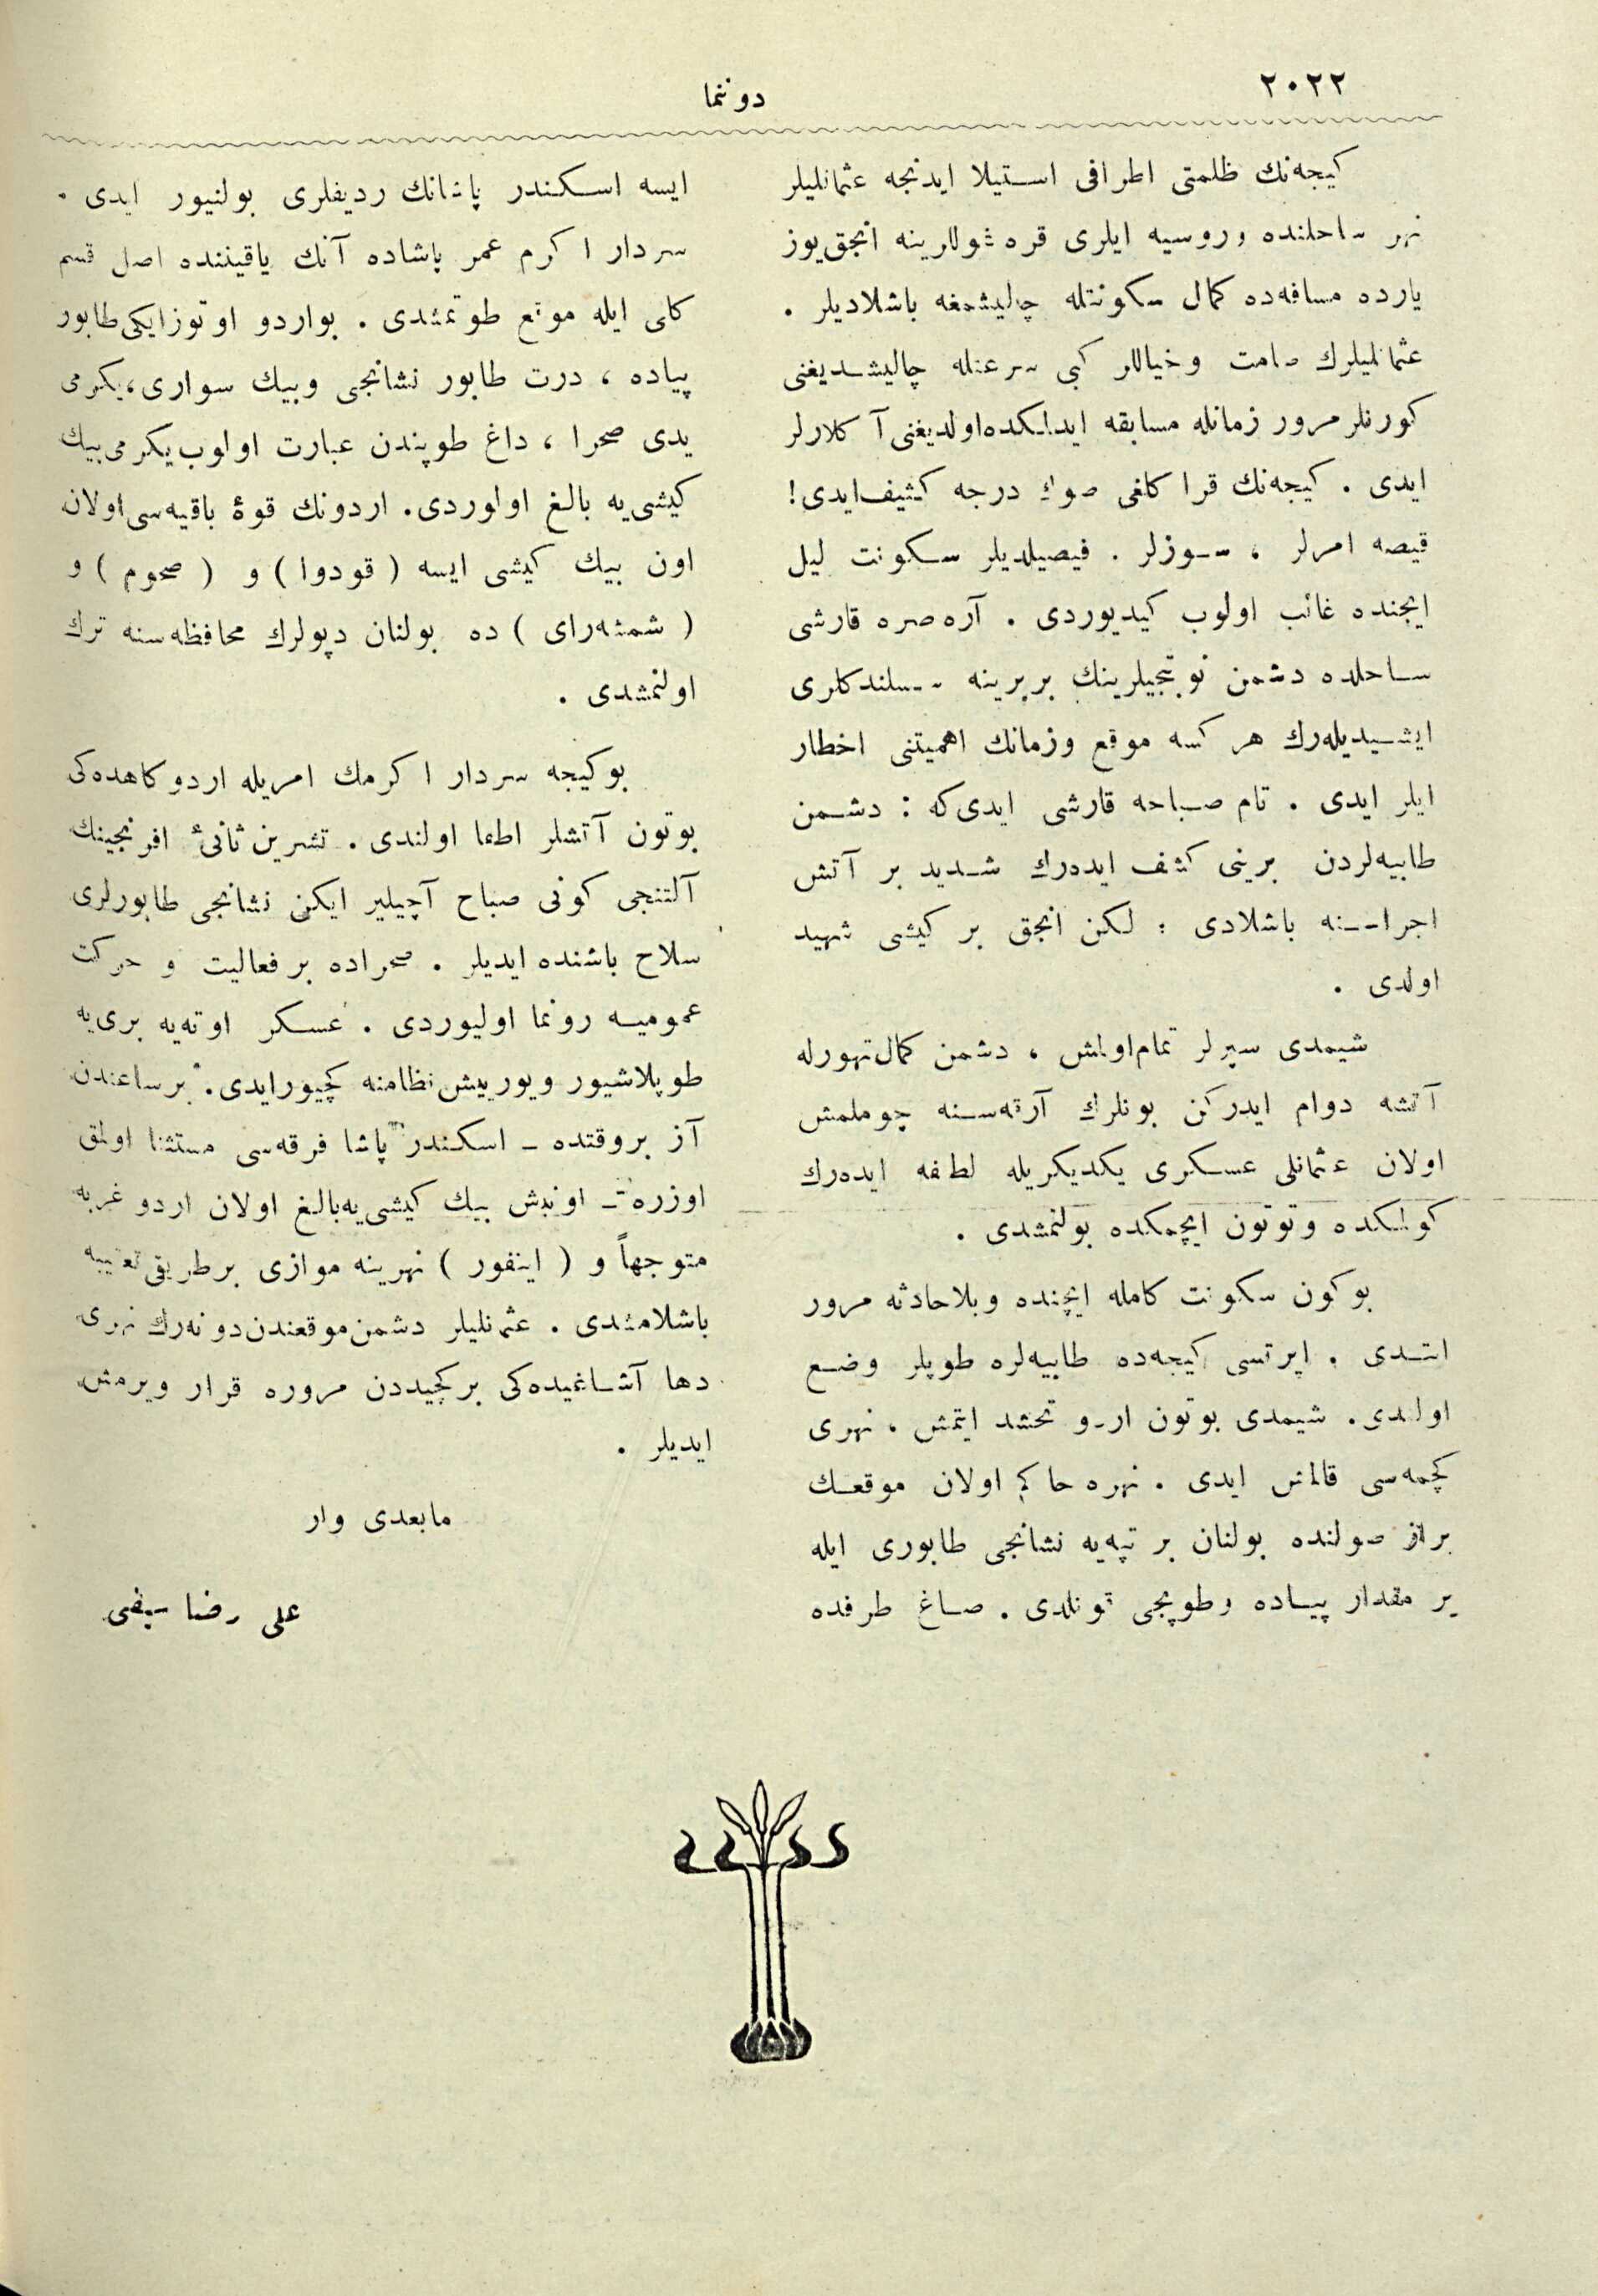 ٢٠٢٢
دوننما
كیجه‌نك ظلمتی اطرافی استیلا ایدنجه عثمانلیلر
نهر ساحلنده وروسیه ایلری قره‌غوللرینه انجق یوز
یارده مسافه‌ده كمال سكونتله چالیشمغه باشلادیلر .
عثمانلیلرك صامت وخیاللر كبی سرعتله چالیشدیغنی
كورنلر مرور زمانله مسابقه ایدلمكده اولدیغنی آكلارلر
ایدی . كیجه‌نك قراكلغی صوك درجه كثیف ایدی!
قیصه امرلر ، سوزلر . فیصیلدیلر سكونت لیل
ایچنده غائب اولوب كیدیوردی . آره صره قارشی
ساحلده دشمن نوبتجیلرینك بربرینه سسلندكلری
ایشیدیله‌رك هر كسه موقع وزمانك اهمیتنی اخطار
ایلر ایدی . تام صباحه قارشی ایدی‌كه : دشمن
طابیه‌لردن برینی كشف ایده‌رك شدید بر آتش
اجراسنه باشلادی ؛ لكن انجق بر كیشی شهید
اولدی .
شیمدی سپرلر تمام اولمش ، دشمن كمال تهورله
آتشه دوام ایدركن بونلرك آرقه‌سنه چوملمش
اولان عثمانلی عسكری یكدیكریله لطفه ایده‌رك
كولمكده وتوتون ایچمكده بولنمشدی .
بو كون سكونت كامله ایچنده وبلاحادثه مرور
ایتدی . ایرتسی كیجه‌ده طابیه‌لره طوپلر وضع
اولندی. شیمدی بوتون اردو تحشد ایتمش . نهری
كچمه‌سی قالمش ایدی . نهره حاكم اولان موقعك
براز صولنده بولنان بر تپه‌یه نشانجی طابوری ایله
بر مقدار پیاده وطوپجی قونلدی . صاغ طرفده
ایسه اسكندر پاشانك ردیفلری بولنیور ایدی .
سردار اكرم عمر پاشاده آنك یاقیننده اصل قسم
كلی ایله موقع طوتمشدی . بواردو اوتوزایكی طابور
پیاده ، درت طابور نشانجی وبیك سواری، یكرمی
یدی صحرا ، داغ طوپندن عبارت اولوب یكرمی بیك
كیشی‌یه بالغ اولوردی. اردونك قوهٔ باقیه‌سی اولان
اون بیك كیشی ایسه ( قودوا ) و ( صحوم ) و
( شمشه‌رای ) ده بولنان دپولرك محافظه‌سنه ترك
اولنمشدی .
بو كیجه سردار اكرمك امریله اردوكاهده‌كی
بوتون آتشلر اطفا اولندی . تشرین ثانیٔ افرنجینك
آلتنجی كونی صباح آچیلیر ایكن نشانجی طابورلری
سلاح باشنده ایدیلر . صحراده بر فعالیت و حركت
عمومیه رونما اولیوردی . عسكر اوته‌یه بری‌یه
طوپلاشیور ویورییش نظامنه كچیور ایدی. بر ساعتدن
آز بروقتده ـ اسكندر پاشا فرقه‌سی مستثنا اولمق
اوزره ـ اون‌بش بیك كیشی‌یه بالغ اولان اردو غربه
متوجهاً و ( اینغور ) نهرینه موازی بر طریق تعقیبه
باشلامشدی . عثمانلیلر دشمن موقعندن دونه‌رك نهری
دها آشاغیده‌كی بر كچیددن مروره قرار ویرمش
ایدیلر .
مابعدی وار
علی رضا سیفی